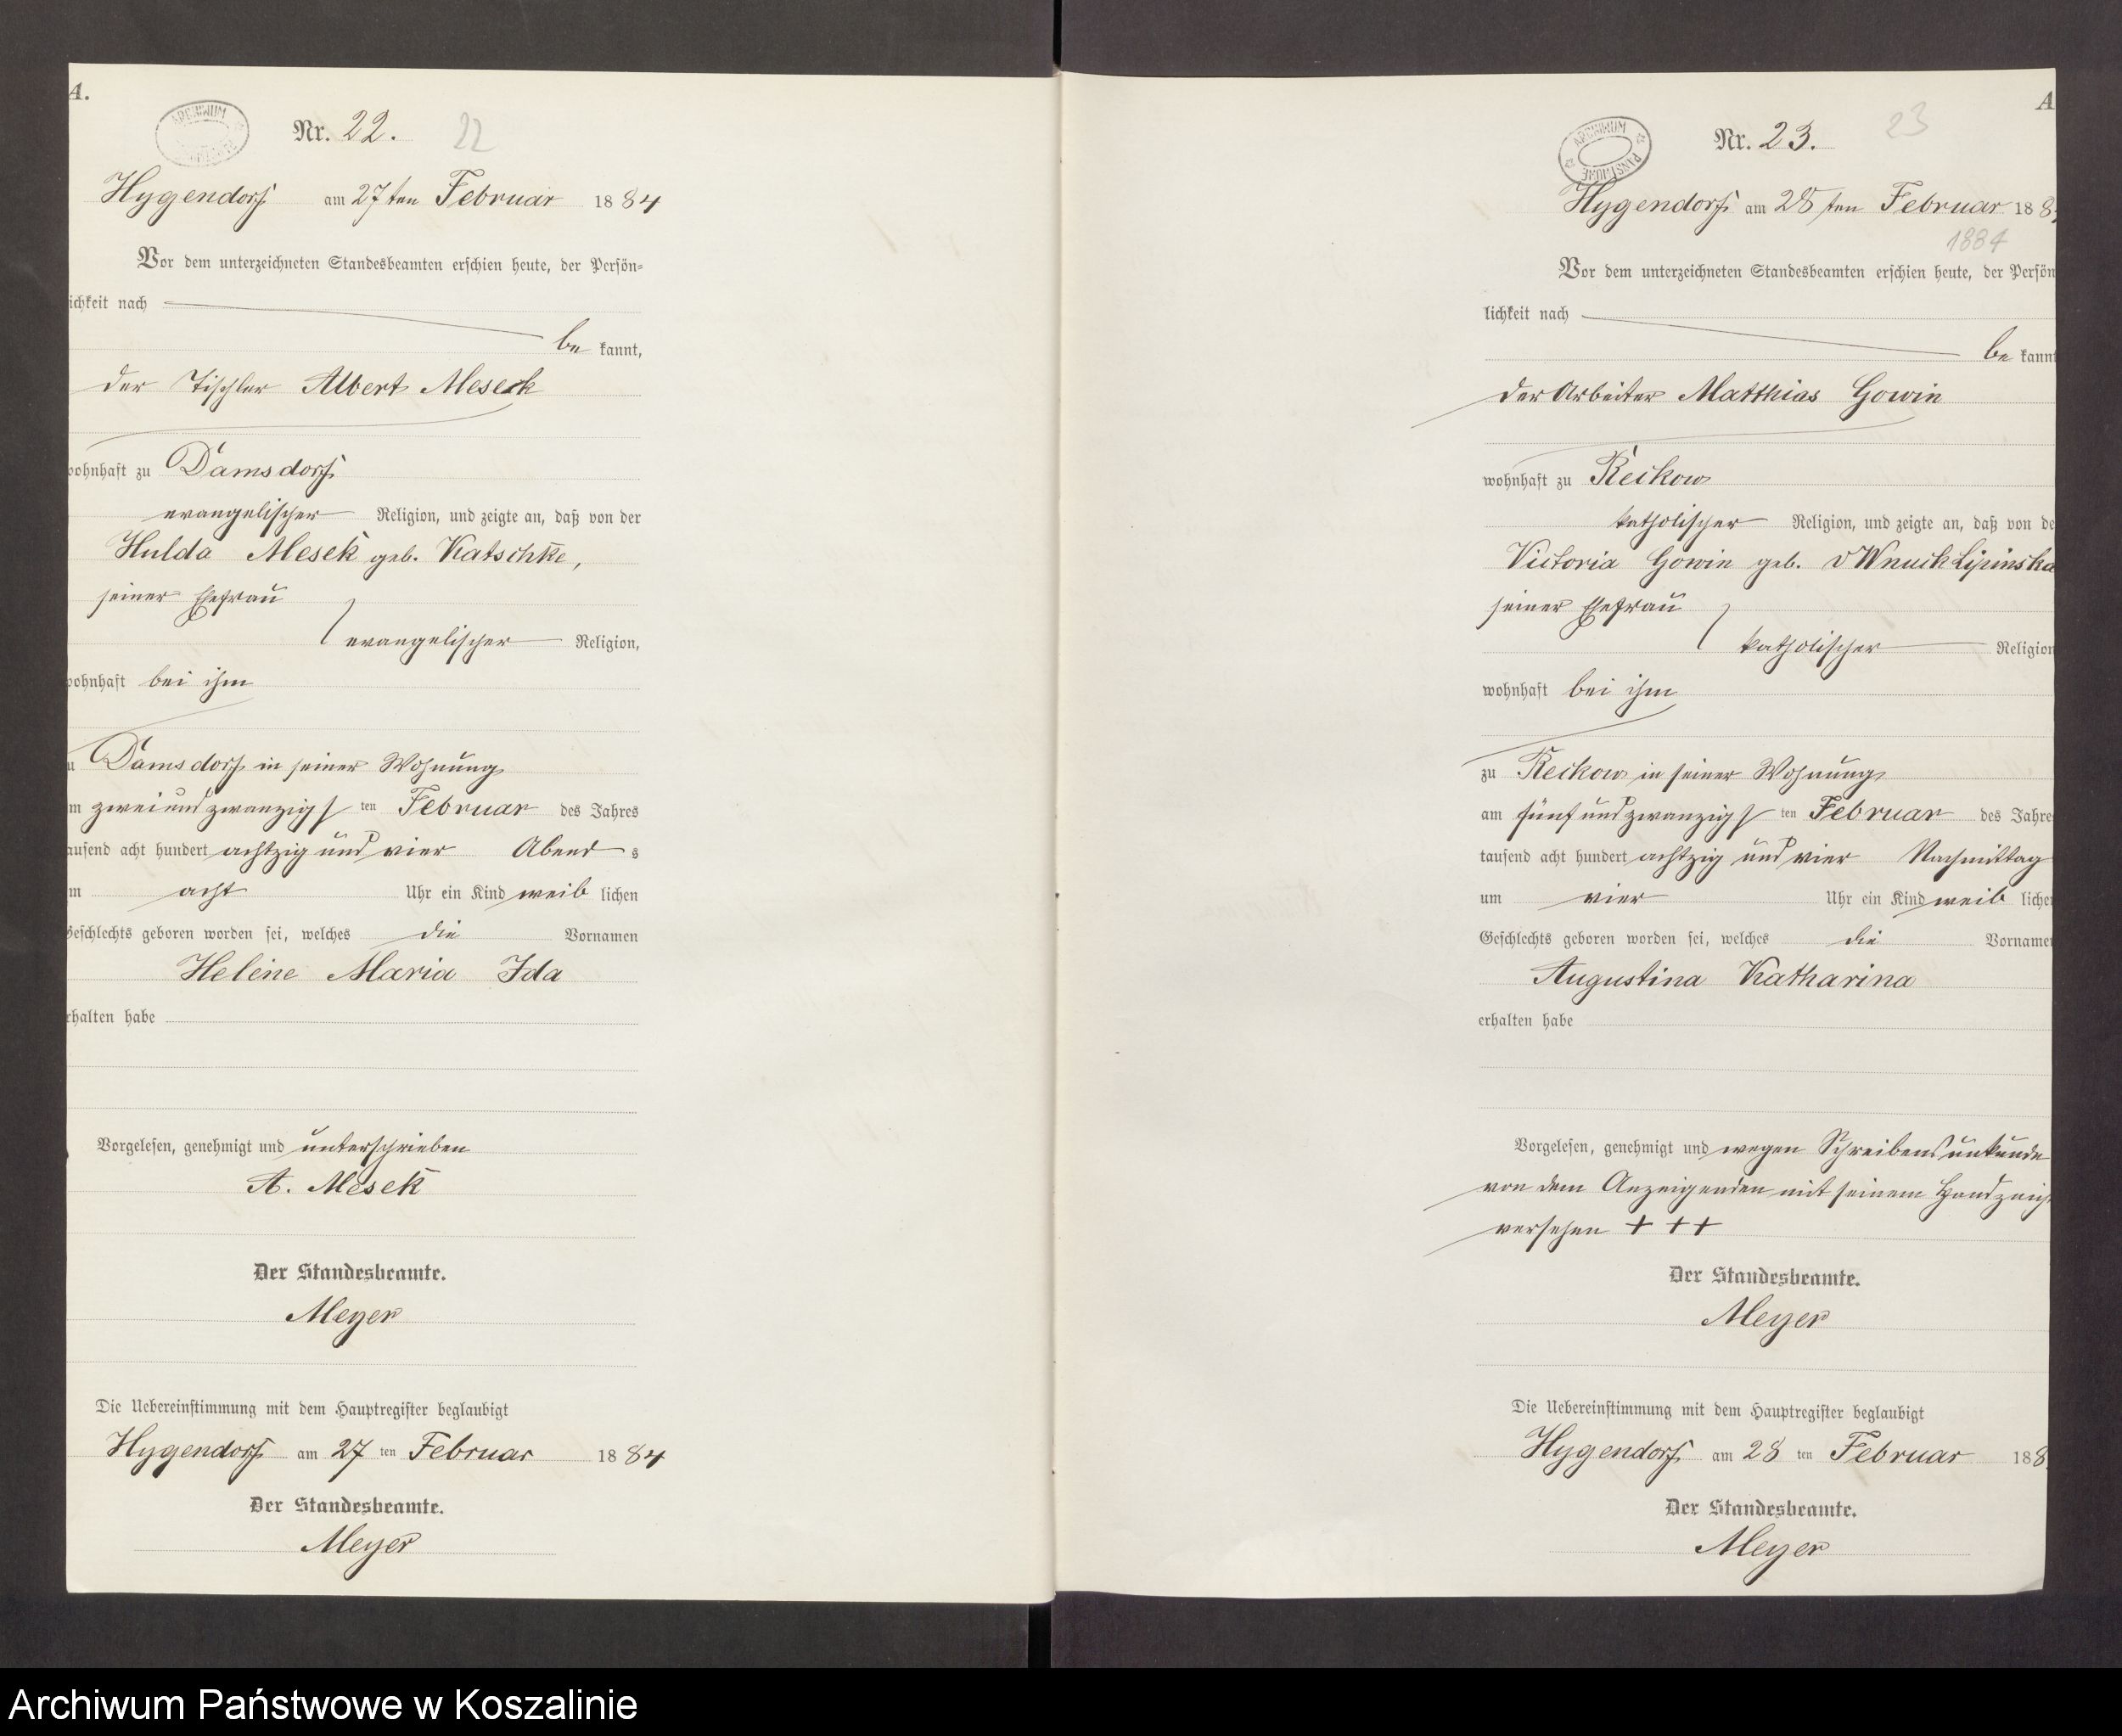 A.
ARCHIWUM
Nr. 22. 22
Hygendorf am 27ten Februar 1884
Vor dem unterzeichneten Standesbeamten erschien heute, der Persön-
ichkeit nach
be kannt,
der Tischler Albert Meseck
wohnhaft zu Damsdorf
evangelischer Religion, und zeigte an, daß von der
Hulda Mesek geb. Katschke,
seiner Ehefrau
evangelischer Religion,
wohnhaft bei ihm
u Damsdorf in seiner Wohnung
m zwei und zwanzigsten Februar des Jahres
ausend acht hundert achtzig und vier Abends
m acht Uhr ein Kind weiblichen
Geschlechts geboren worden sei, welches die Vornamen
Helene Maria Ida
rhalten habe
Vorgelesen, genehmigt und unterschrieben
A. Mesek
Der Standesbeamte.
Meyer
Die Uebereinstimmung mit dem Hauptregister beglaubigt
Hygendorf am 27ten Februar 1884
Der Standesbeamte.
Meyer
A
ARCHIWUM PAŃSTWOWE
Nr. 23. 23
Hygendorf am 28ten Februar 188
1884
Vor dem unterzeichneten Standesbeamten erschien heute, der Persön
lichkeit nach
be kannt
der Arbeiter Matthias Gowin
wohnhaft zu Reckow
katholischer Religion, und zeigte an, daß von de
Victoria Gowin geb. v Wnuck Lipinska
seiner Ehefrau
katholischer Religion
wohnhaft bei ihm
zu Reckow in seiner Wohnung
am fünf und zwanzigsten Februar des Jahre
tausend acht hundert achtzig und vier Nachmittag
um vier Uhr ein Kind weibliche
Geschlechts geboren worden sei, welches die Vorname
Augustina Katharina
erhalten habe
Vorgelesen, genehmigt und wegen Schreibensunkunde
von dem Anzeigenden mit seinem Handzeich
versehen + + +
Der Standesbeamte.
Meyer
Die Uebereinstimmung mit dem Hauptregister beglaubigt
Hygendorf am 28 ten Februar 188
Der Standesbeamte.
Meyer
Archiwum Państwowe w Koszalinie